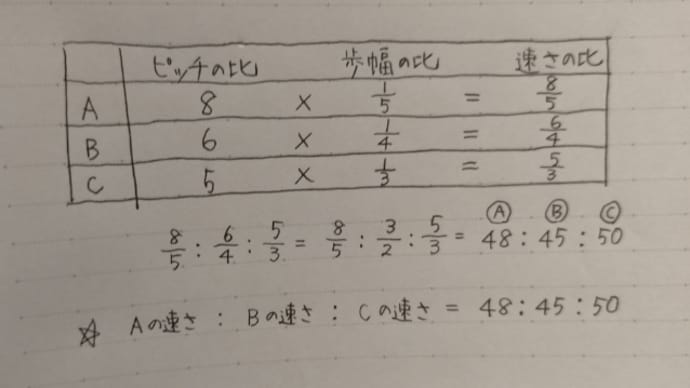 ピッチの比 歩幅の比 速さの比
A 8 × 1/5 = 8/5
B 6 × 1/4 = 6/4
C 5 × 1/3 = 5/3
Ⓐ Ⓑ Ⓒ
8/5 : 6/4 : 5/3 = 8/5 : 3/2 : 5/3 = 48 : 45 : 50
☆ Aの速さ : Bの速さ : Cの速さ = 48 : 45 : 50